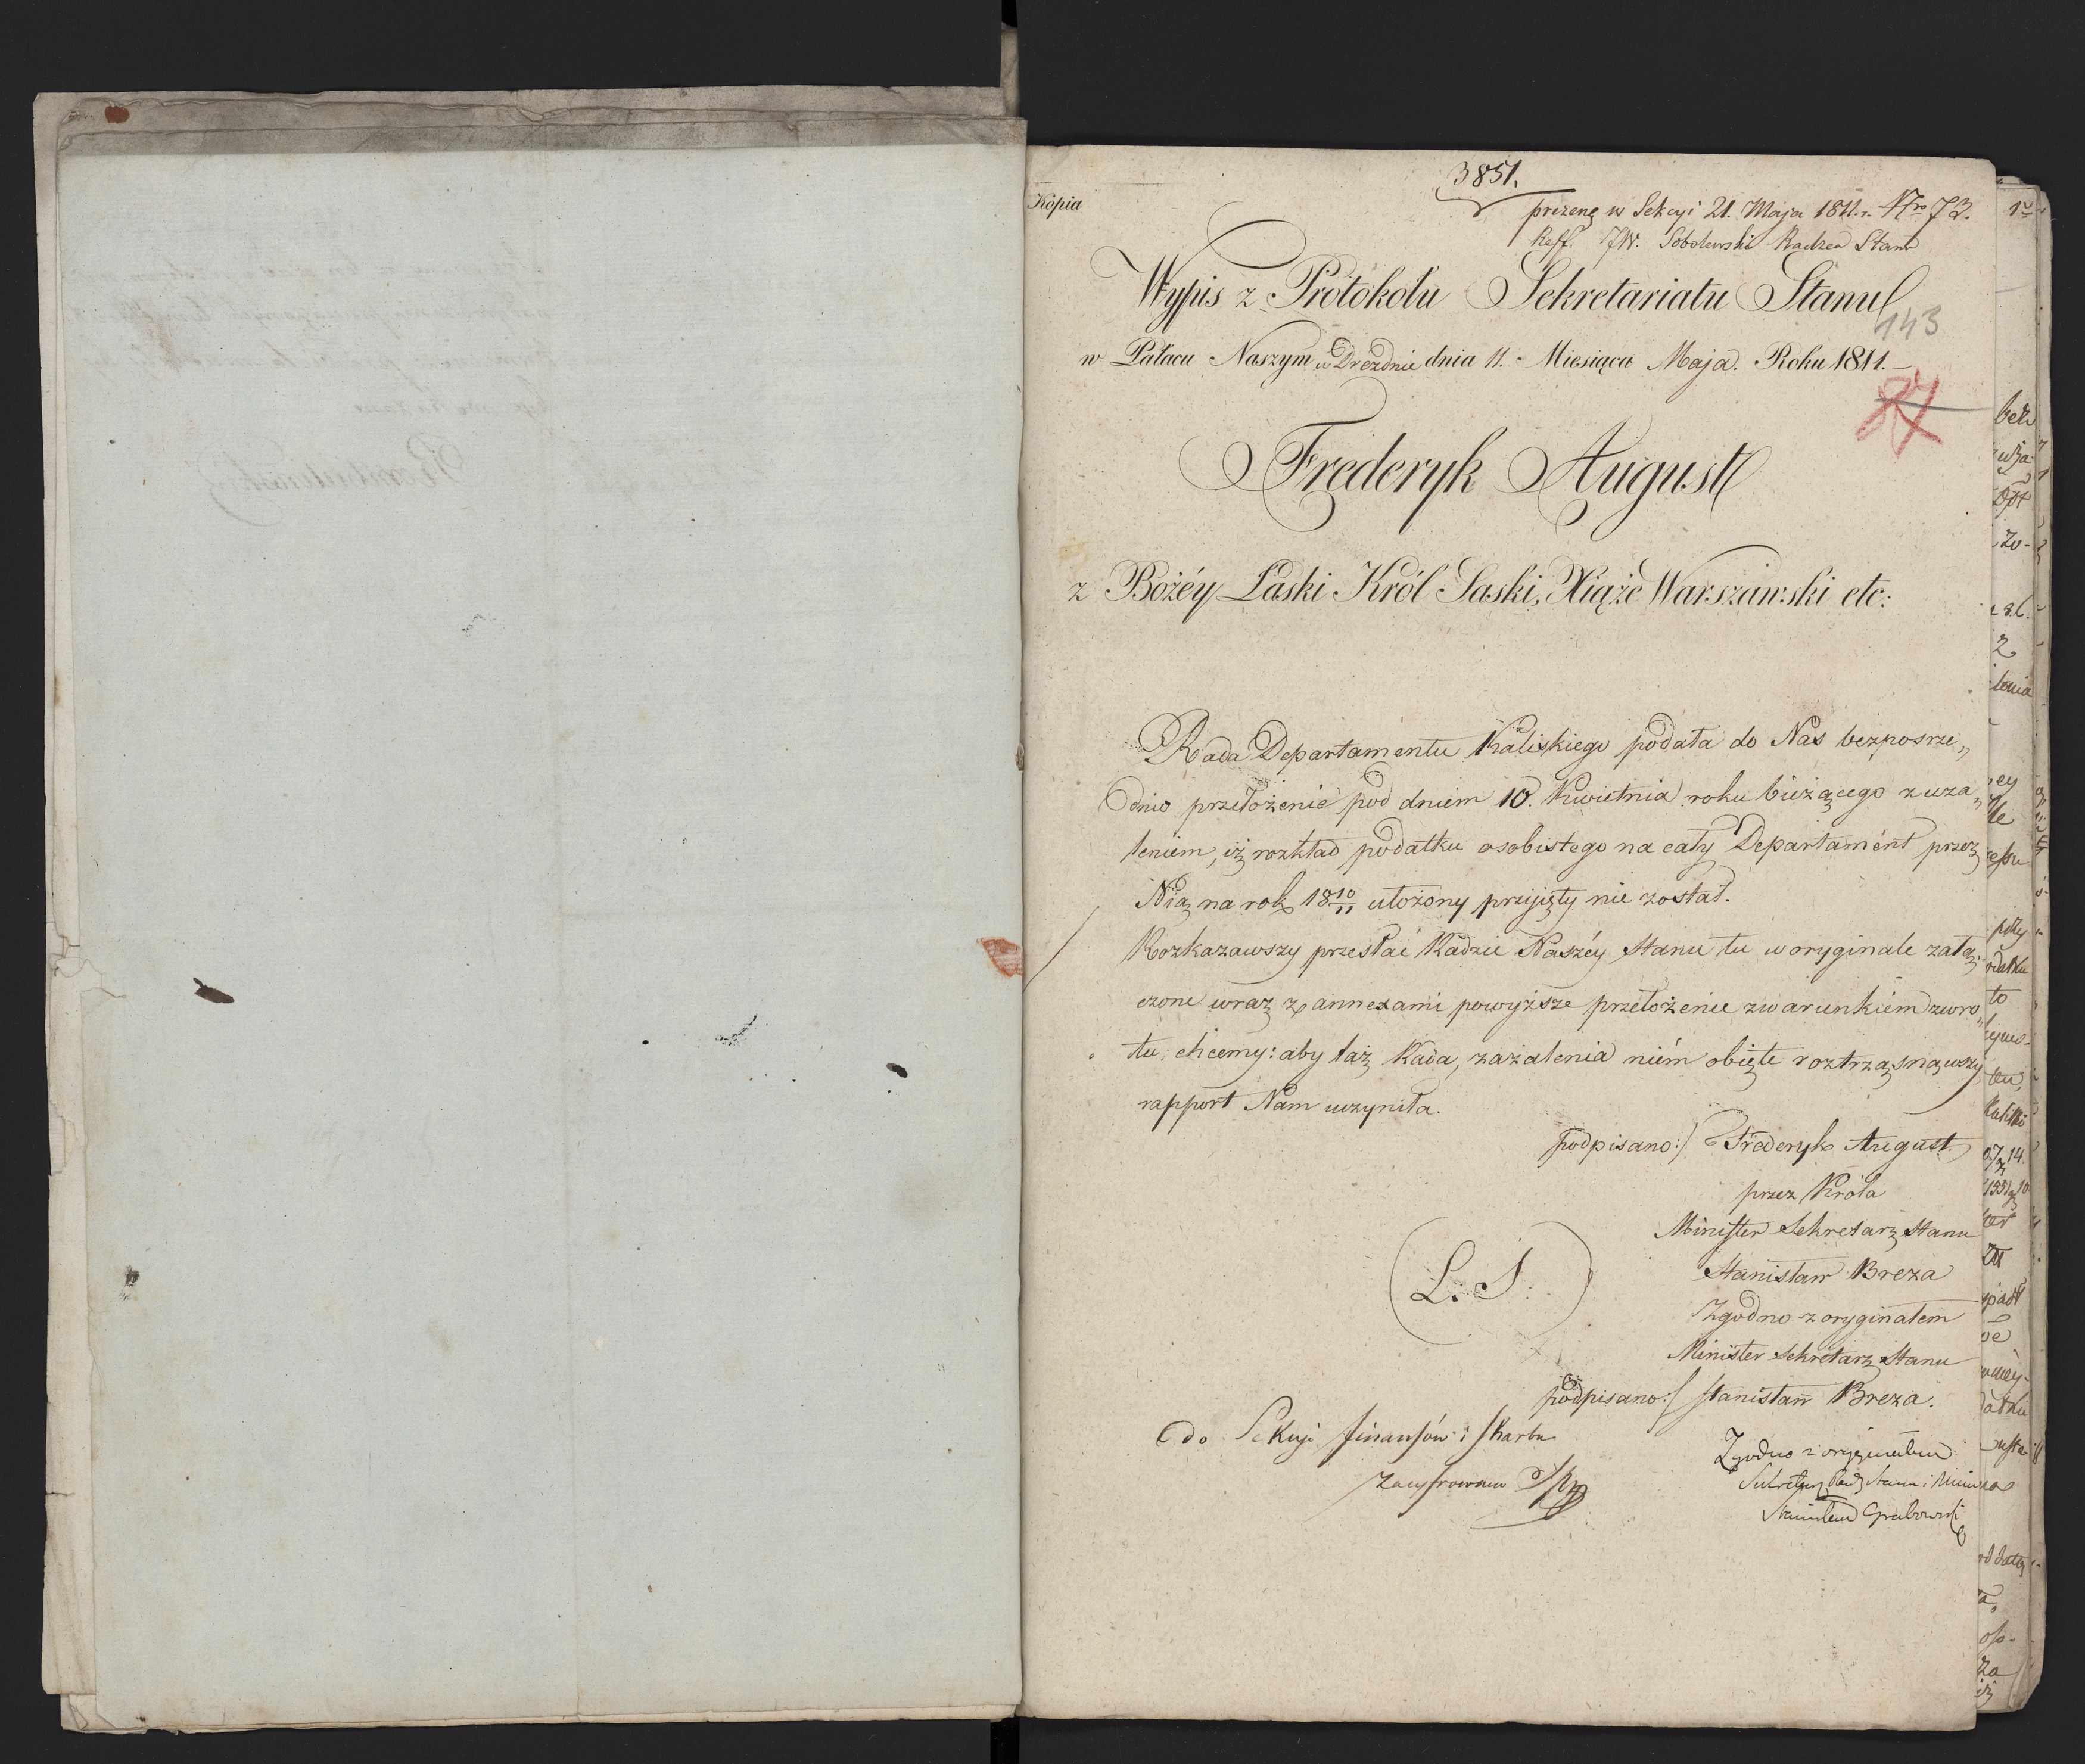 3851.
Kopia
prezenę w Sekcyi 21. Maja 1811. r. Nro 73.
Reff. JW. Sobolewski Radzca Stanu
Wypis z Protokołu Sekretariatu Stanu
143
w Pałacu Naszym w Dreźdnie dnia 11. Miesiąca Maja. Roku 1811.
87
Frederyk August
z Bożéy Łaski Król Saski, Xiąże Warszawski etc:
Rada Departamentu Kaliskiego podała do Nas bezposrze„
dnio przełożenie pod dniem 10. Kwietnia roku bieżącego z uża„
leniem, iż rozkład podatku osobistego na cały Departamént przez
Nią na rok 18 10/11 ułożony przyięty nie został.
Rozkazawszy przesłać Radzie Naszéy Stanu tu w oryginale załą„
czone wraz z annexami powyższe przełożenie z warunkiem zwro„
tu, chcemy: aby taż Rada, zażalenia niém obięte roztrząsnąwszy
rapport Nam uczyniła.
podpisano:/ Frederyk August
przez Króla
Minister Sekretarz Stanu
Stanisław Breza
(L. S.)
Zgodno z oryginałem
Minister Sekretarz Stanu
podpisano:/ Stanisław Breza.
do Sekcyi finansów i skarbu
Zgodno z oryginałem
zacyfrowano
Sekretarz Rady Stanu i Minis
Stanisław Grabowski